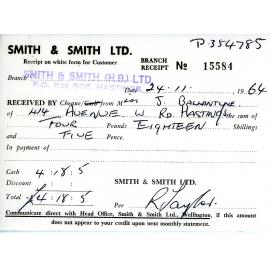 P354785
SMITH & SMITH LTD.
Receipt on white form for Customer
BRANCH RECEIPT No 15584
Branch SMITH & SMITH (H.B.) LTD.
P.O. BOX 808, HASTINGS
Date 24.11. 1964
RECEIVED BY Cheque/Cash from M rs J. BALLANTYNE
of 414 AVENUE W RD. HASTINGS the sum of
FOUR Pounds EIGHTEEN Shillings
and FIVE Pence
In payment of
Cash 4 : 18 : 5
Discount : :
Total £4 : 18 : 5
SMITH & SMITH LTD.
Per R Taylor
Communicate direct with Head Office, Smith & Smith Ltd., Wellington, if this amount
does not appear to your credit upon next monthly statement.